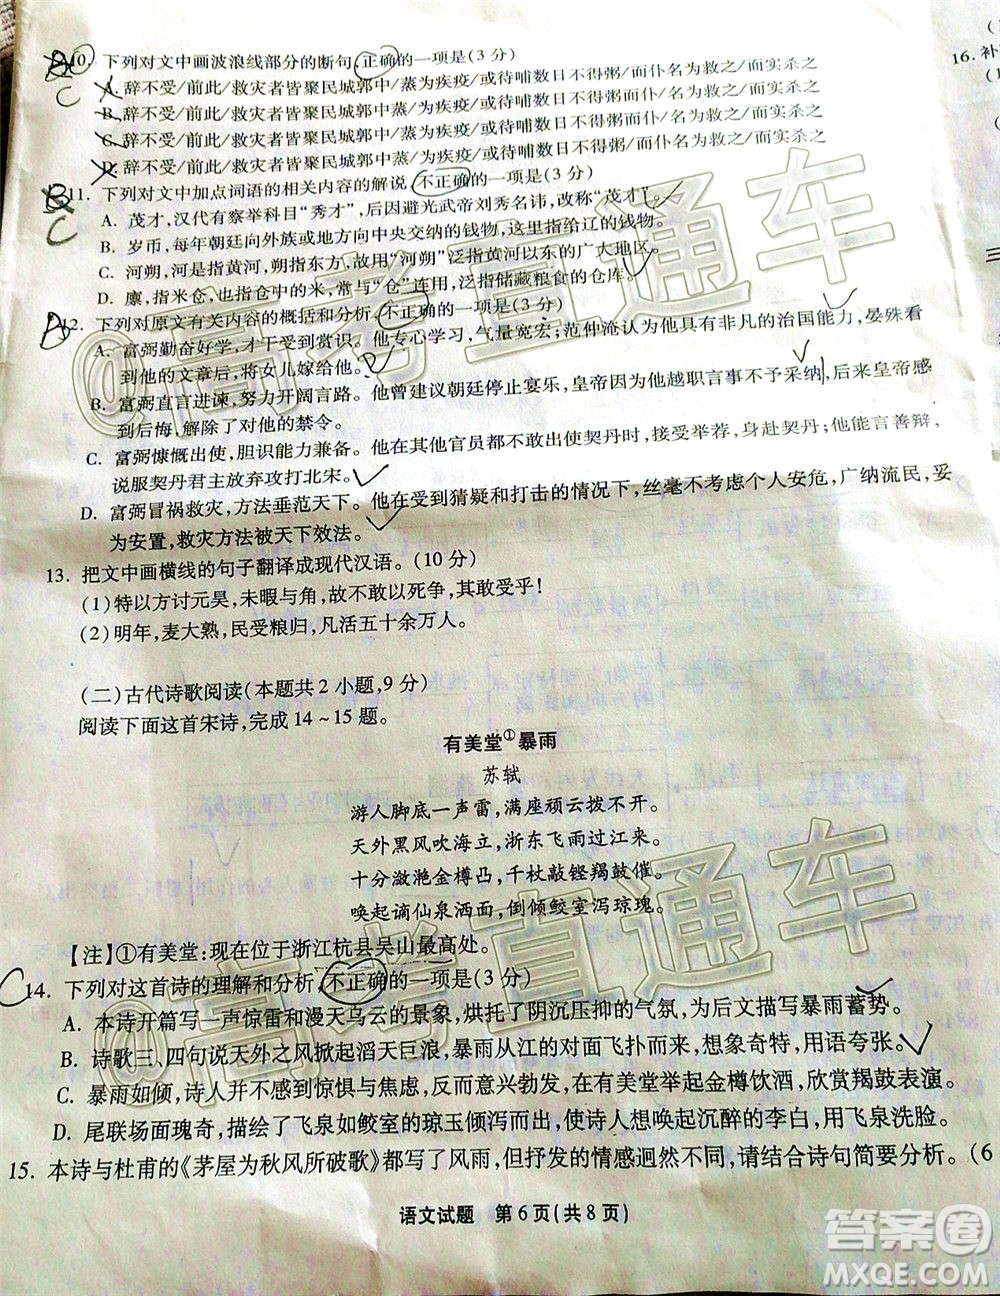 10. 下列对文中画波浪线部分的断句,正确的一项是(3分)
A. 辞不受/前此/救灾者皆聚民城郭中/蒸为疾疫/或待哺数日不得粥/而仆名为救之/而实杀之
B. 辞不受/前此/救灾者皆聚民城郭中蒸/为疾疫/或待哺数日不得粥/而仆名为救之/而实杀之
C. 辞不受/前此/救灾者皆聚民城郭中/蒸为疾疫/或待哺数日不得粥而仆/名为救之/而实杀之
D. 辞不受/前此/救灾者皆聚民城郭中蒸/为疾疫/或待哺数日不得粥而仆/名为救之/而实杀之
11. 下列对文中加点词语的相关内容的解说,不正确的一项是(3分)
A. 茂才,汉代有察举科目“秀才”,后因避光武帝刘秀名讳,改称“茂才”。
B. 岁币,每年朝廷向外族或地方向中央交纳的钱物,文中指前者交纳的钱物。
C. 河朔,河是指黄河,朔指东方,故用“河朔”泛指黄河以东的广大地区。
D. 廪,指米仓,也指仓中的米,常以积蓄之义,泛指储藏粮食的仓库。
12. 下列对原文有关内容的概括和分析,不正确的一项是(3分)
A. 富弼勤奋好学,才干受到赏识。他专心学习,气量宽宏;范仲淹认为他具有非凡的治国能力,晏殊看
到他的文章后,将女儿嫁给他。
B. 富弼直言进谏,敢于打破禁忌。他曾建议朝廷停止宴乐,皇帝因为他越职言事不予采纳,后来皇帝感
到后悔,解除了对他的禁令。
C. 富弼慷慨出使,胆识才能兼备。他在其他官员都不敢出使契丹时,接受举荐,身赴契丹;他能言善辩,
说服契丹君主放弃攻打北宋。
D. 富弼冒祸救灾,方法垂范天下。他在受到猜疑和打击的情况下,丝毫不考虑个人安危,广纳流民,妥
为安置,救灾方法被天下效法。
13. 把文中画横线的句子翻译成现代汉语。(10分)
(1)特以方讨元昊,未暇与角,故不敢以死争,其敢受乎!
(2)明年,麦大熟,民受粮归,凡活五十余万人。
(二)古代诗歌阅读(本题共2小题,9分)
阅读下面这首宋诗,完成14~15题。
有美堂①暴雨
苏轼
游人脚底一声雷,满座顽云拨不开。
天外黑风吹海立,浙东飞雨过江来。
十分潋滟金樽凸,千杖敲铿羯鼓催。
唤起谪仙泉洒面,倒倾鲛室泻琼瑰。
【注】①有美堂:现在位于浙江杭县吴山最高处。
14. 下列对这首诗的理解和分析,不正确的一项是(3分)
A. 本诗开篇写一声惊雷和漫天乌云的景象,烘托了阴沉压抑的气氛,为后文描写暴雨蓄势。
B. 诗歌三、四句说天外之风掀起滔天巨浪,暴雨从江的对面飞扑而来,想象奇特,用语夸张。
C. 暴雨来临,诗人并不感到惊惧与焦虑,反而意兴勃发,在有美堂举起金樽饮酒,欣赏羯鼓表演。
D. 尾联场面瑰奇,描绘了飞泉如鲛室的琼玉倾泻而出,使诗人多么想唤起沉醉的李白,用飞泉洗脸。
15. 本诗与杜甫的《茅屋为秋风所破歌》都写了风雨,但抒发的情感迥然不同,请结合诗句简要分析。(6
语文试题 第6页(共8页)
16. 补
三
@高考直通车
高考直通车
答案圈
MXQE.COM